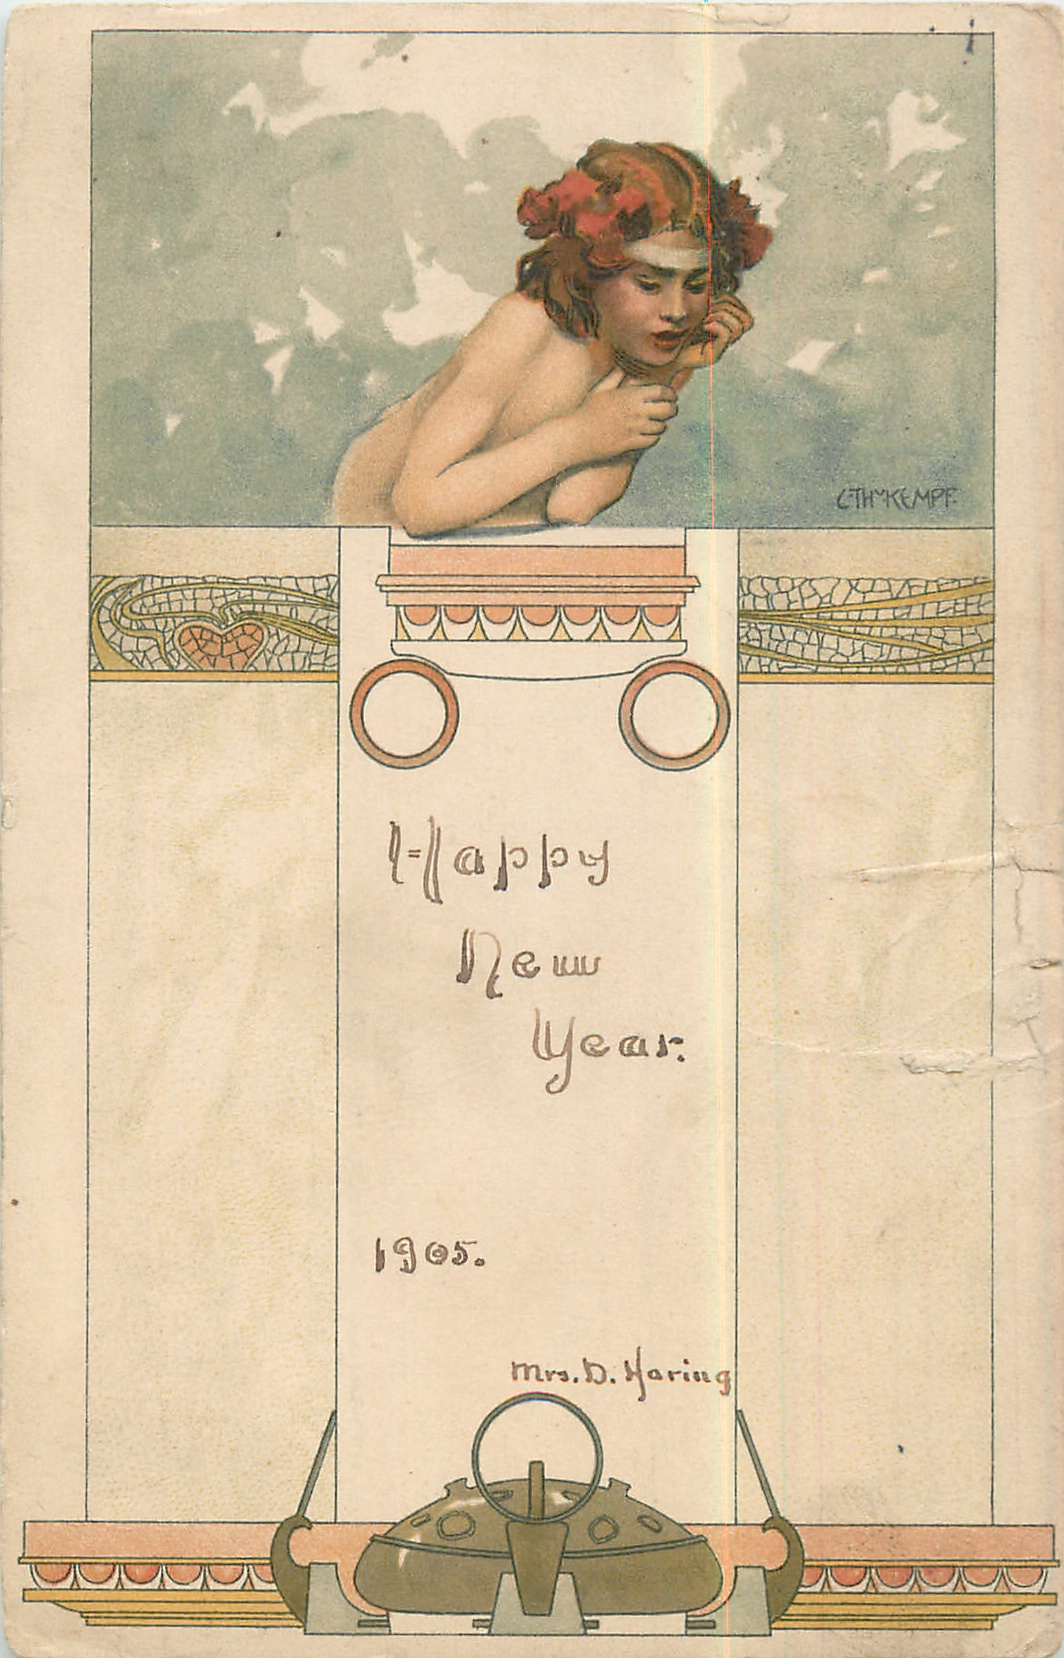 C. THM KEMPF.
Happy
New
Year.
1905.
Mrs. D. Haring